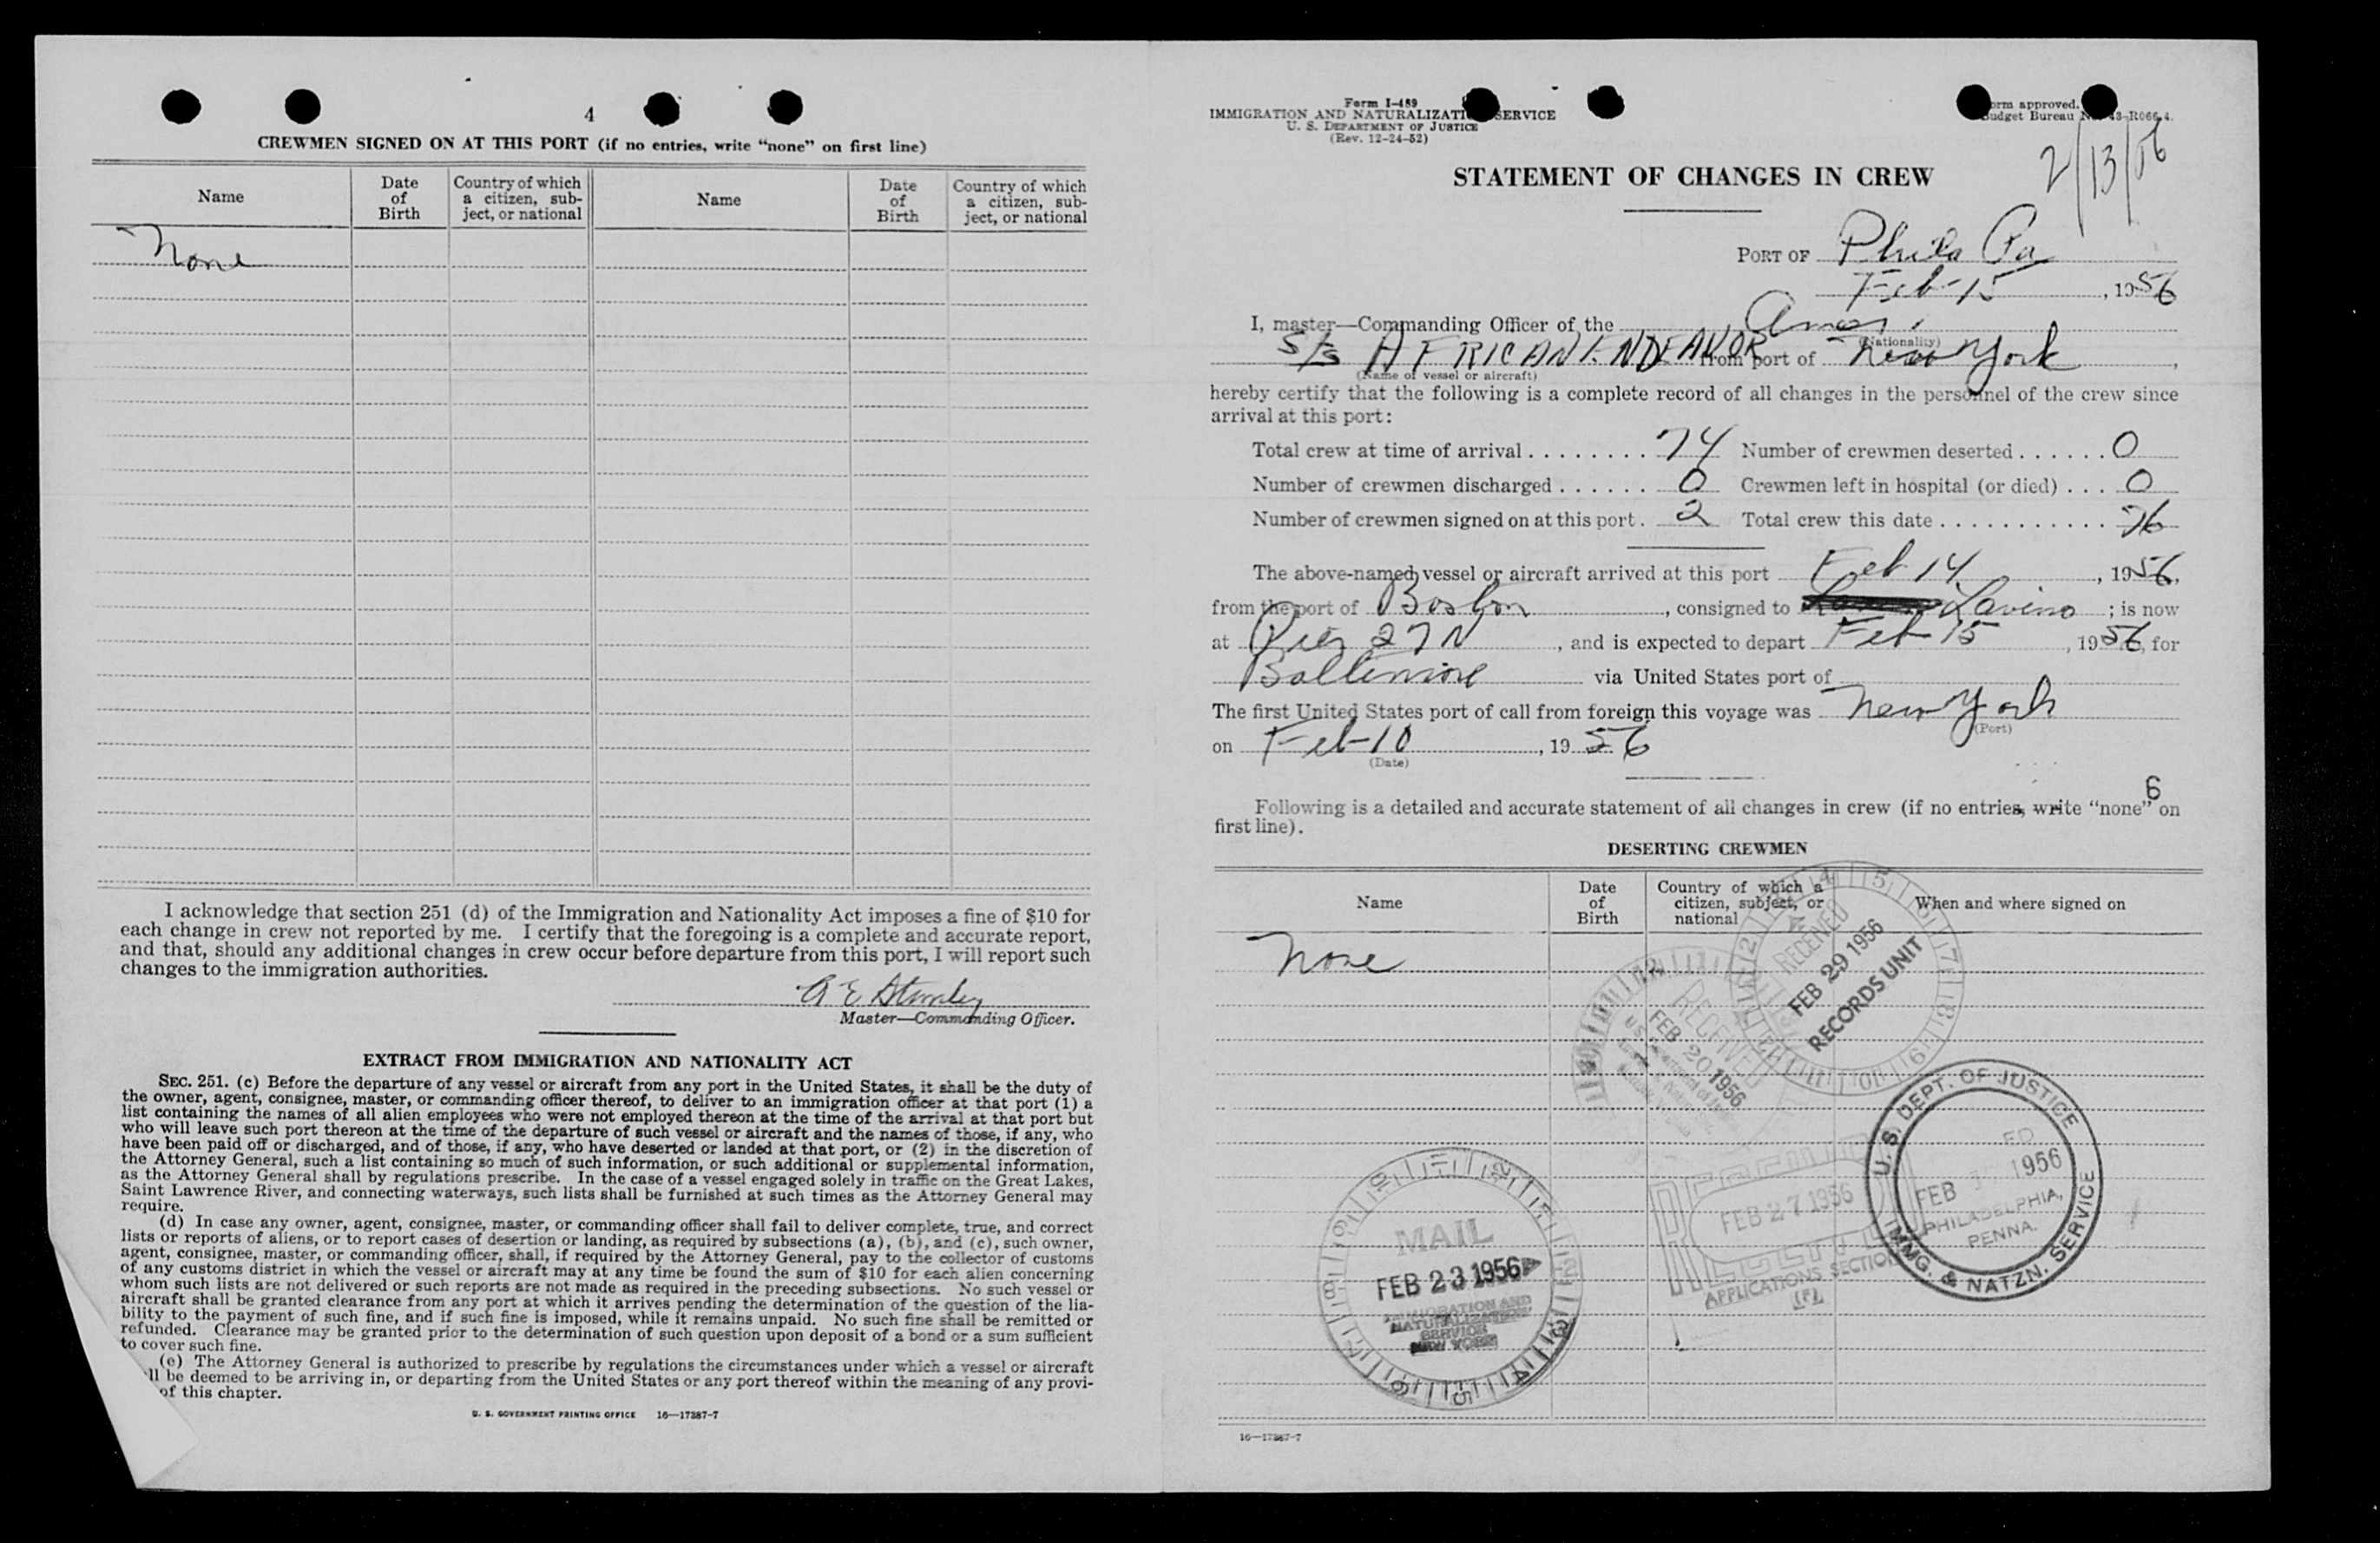 4
CREWMEN SIGNED ON AT THIS PORT (if no entries, write “none” on first line)
Name
Date of Birth
Country of which a citizen, subject, or national
Name
Date of Birth
Country of which a citizen, subject, or national
None
I acknowledge that section 251 (d) of the Immigration and Nationality Act imposes a fine of $10 for
each change in crew not reported by me. I certify that the foregoing is a complete and accurate report,
and that, should any additional changes in crew occur before departure from this port, I will report such
changes to the immigration authorities.
A E Stanley
Master—Commanding Officer.
EXTRACT FROM IMMIGRATION AND NATIONALITY ACT
SEC. 251. (c) Before the departure of any vessel or aircraft from any port in the United States, it shall be the duty of
the owner, agent, consignee, master, or commanding officer thereof, to deliver to an immigration officer at that port (1) a
list containing the names of all alien employees who were not employed thereon at the time of the arrival at that port but
who will leave such port thereon at the time of the departure of such vessel or aircraft and the names of those, if any, who
have been paid off or discharged, and of those, if any, who have deserted or landed at that port, or (2) in the discretion of
the Attorney General, such a list containing so much of such information, or such additional or supplemental information,
as the Attorney General shall by regulations prescribe. In the case of a vessel engaged solely in traffic on the Great Lakes,
Saint Lawrence River, and connecting waterways, such lists shall be furnished at such times as the Attorney General may
require.
(d) In case any owner, agent, consignee, master, or commanding officer shall fail to deliver complete, true, and correct
lists or reports of aliens, or to report cases of desertion or landing, as required by subsections (a), (b), and (c), such owner,
agent, consignee, master, or commanding officer, shall, if required by the Attorney General, pay to the collector of customs
of any customs district in which the vessel or aircraft may at any time be found the sum of $10 for each alien concerning
whom such lists are not delivered or such reports are not made as required in the preceding subsections. No such vessel or
aircraft shall be granted clearance from any port at which it arrives pending the determination of the question of the lia-
bility to the payment of such fine, and if such fine is imposed, while it remains unpaid. No such fine shall be remitted or
refunded. Clearance may be granted prior to the determination of such question upon deposit of a bond or a sum sufficient
to cover such fine.
(e) The Attorney General is authorized to prescribe by regulations the circumstances under which a vessel or aircraft
ll be deemed to be arriving in, or departing from the United States or any port thereof within the meaning of any provi-
of this chapter.
U. S. GOVERNMENT PRINTING OFFICE 16—17387-7
Form I-489
IMMIGRATION AND NATURALIZATI SERVICE
U. S. DEPARTMENT OF JUSTICE
(Rev. 12-24-52)
orm approved.
udget Bureau N 43-R066.4.
2/13/56
STATEMENT OF CHANGES IN CREW
PORT OF Phila Pa
Feb-15, 1956
I, master—Commanding Officer of the Amer.
(Nationality)
S/S AFRICAN ENDEAVOR from port of New York,
(Name of vessel or aircraft)
hereby certify that the following is a complete record of all changes in the personnel of the crew since
arrival at this port:
Total crew at time of arrival 74 Number of crewmen deserted 0
Number of crewmen discharged 0 Crewmen left in hospital (or died) 0
Number of crewmen signed on at this port. 2 Total crew this date 76
The above-named vessel or aircraft arrived at this port Feb 14, 1956,
from the port of Boston, consigned to Lavino; is now
at Pier 27 N, and is expected to depart Feb 15, 1956, for
Baltimore via United States port of
The first United States port of call from foreign this voyage was New York
(Port)
on Feb-10, 1956
(Date)
6
Following is a detailed and accurate statement of all changes in crew (if no entries, write “none” on
first line).
DESERTING CREWMEN
Name
Date of Birth
Country of which a citizen, subject, or national
When and where signed on
None
RECEIVED
FEB 29 1956
RECORDS UNIT
RECEIVED
FEB 20 1956
U. S. DEPT. OF JUSTICE
FEB 1956
PHILADELPHIA,
PENNA.
IMMG. & NATZN. SERVICE
FEB 27 1956
APPLICATIONS SECTION
MAIL
FEB 23 1956
IMMIGRATION AND
NATURALIZATION
SERVICE
NEW YORK
16—17387-7